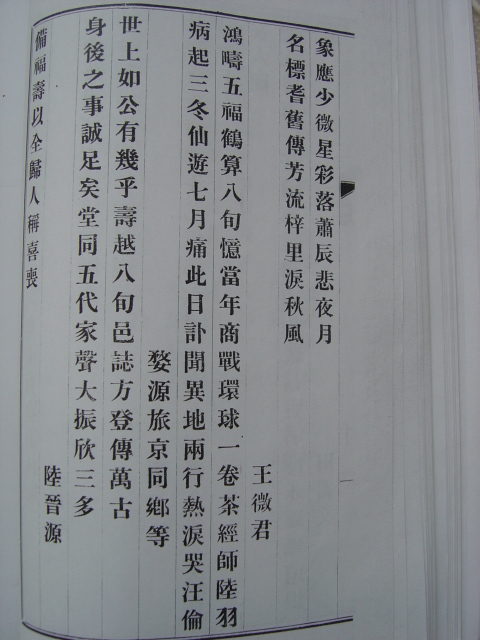 象應少微星彩落蕭辰悲夜月
名標耆舊傳芳流梓里淚秋風
王微君
鴻疇五福鶴算八旬憶當年商戰環球一卷茶經師陸羽
病起三冬仙遊七月痛此日訃聞異地兩行熱淚哭汪倫
婺源旅京同鄉等
世上如公有幾乎壽越八旬邑誌方登傳萬古
身後之事誠足矣堂同五代家聲大振欣三多
陸晉源
備福壽以全歸人稱喜喪